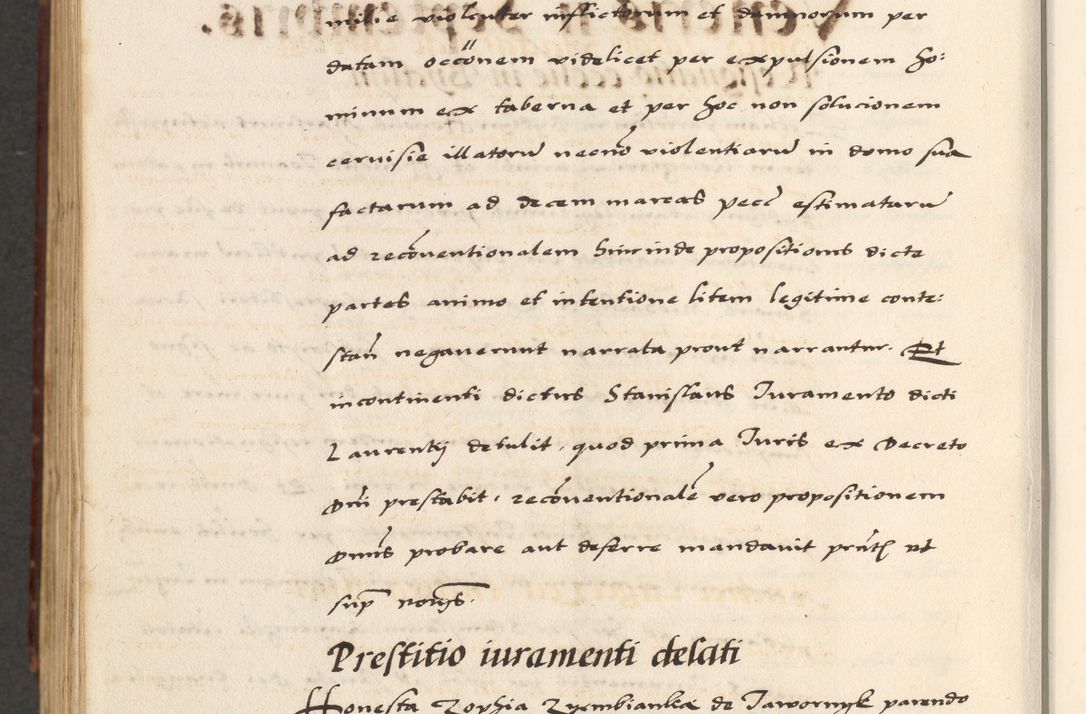 milie violenter inflictorum et damnorum per
datam occõnem videlicet per expulsionem ho:
minum ex taberna et per hoc non solucionem
ceruisie illatorũ necnõ violentiarũ in domo sua
factarum ad decem marcas pecc̃ estimatarũ
ad recõuentionalem hincinde propositionis dicte
partes animo et intentione litem legitime conte:
stañ negaverunt narrata prout narrantur. Et
incontinenti dictus Stanislaus Iuramento dicti
Laurentij detulit, quod prima Iuris ex Decreto
Dñi prestabit, recõuentionalẽ vero propositionem
Dñus probare aut deferre mandauit pñtỹ ut
sup̃ nouis.
Prestitio iuramenti delati
Honesta Zophia de Jawornyk parendo